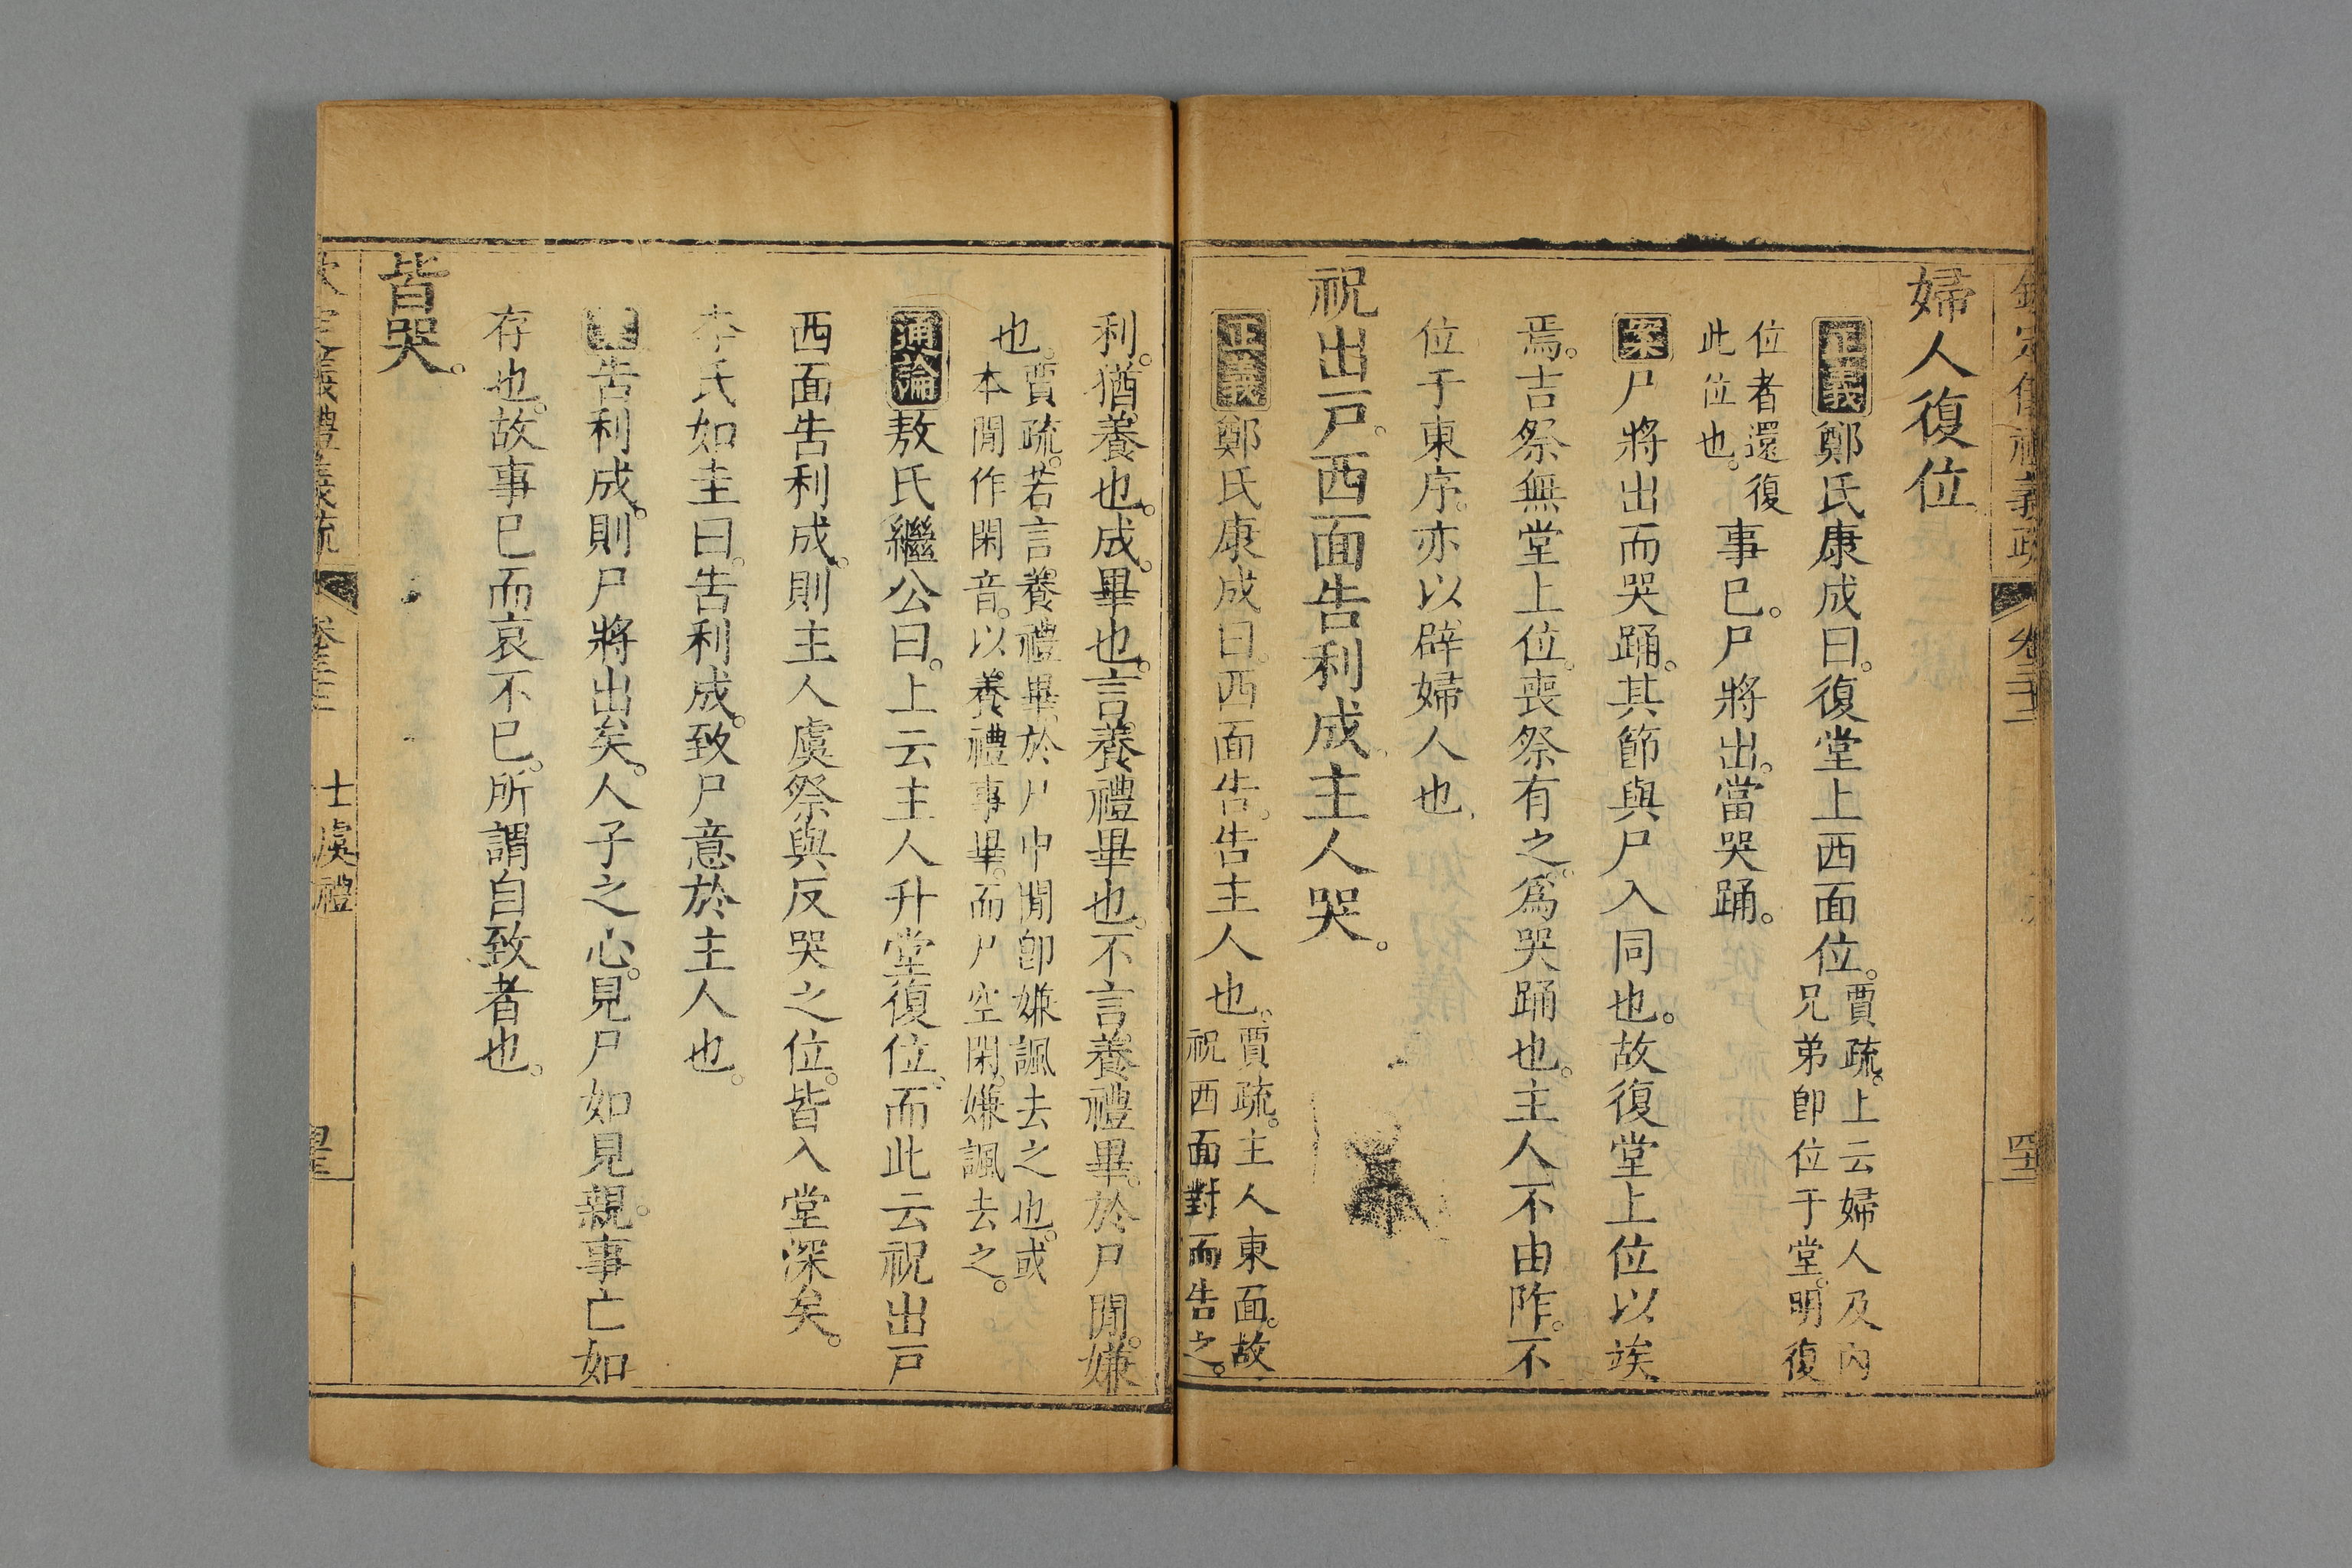 婦人復位
正義鄭氏康成曰。復堂上西面位。賈疏。上云婦人及內
兄弟卽位于堂。明復
位者還復
此位也。事已。尸將出。當哭踊。
案尸將出而哭踊。其節與尸入同也。故復堂上位以竢
焉。吉祭無堂上位。喪祭有之。爲哭踊也。主人不由阼。不
位于東序。亦以辟婦人也
祝出戸。西面告利成。主人哭。
正義鄭氏康成曰。西面告。告主人也。賈疏。主人東面。故
祝西面對而告之。
利。猶養也。成。畢也。言養禮畢也。不言養禮畢。於尸閒。嫌
也。賈疏。若言養禮畢。於尸中閒卽嫌諷去之也。或
本閒作閑音。以養禮事畢。而尸空閑。嫌諷去之。
通論敖氏繼公曰。上云主人升堂復位。而此云祝出戸
西面告利成。則主人虞祭與反哭之位。皆入堂深矣。
李氏如圭曰。告利成。致尸意於主人也。
告利成。則尸將出矣。人子之心。見尸如見親。事亡如
存也。故事已而哀不已。所謂自致者也。
皆哭。
欽定儀禮義疏
士虞禮